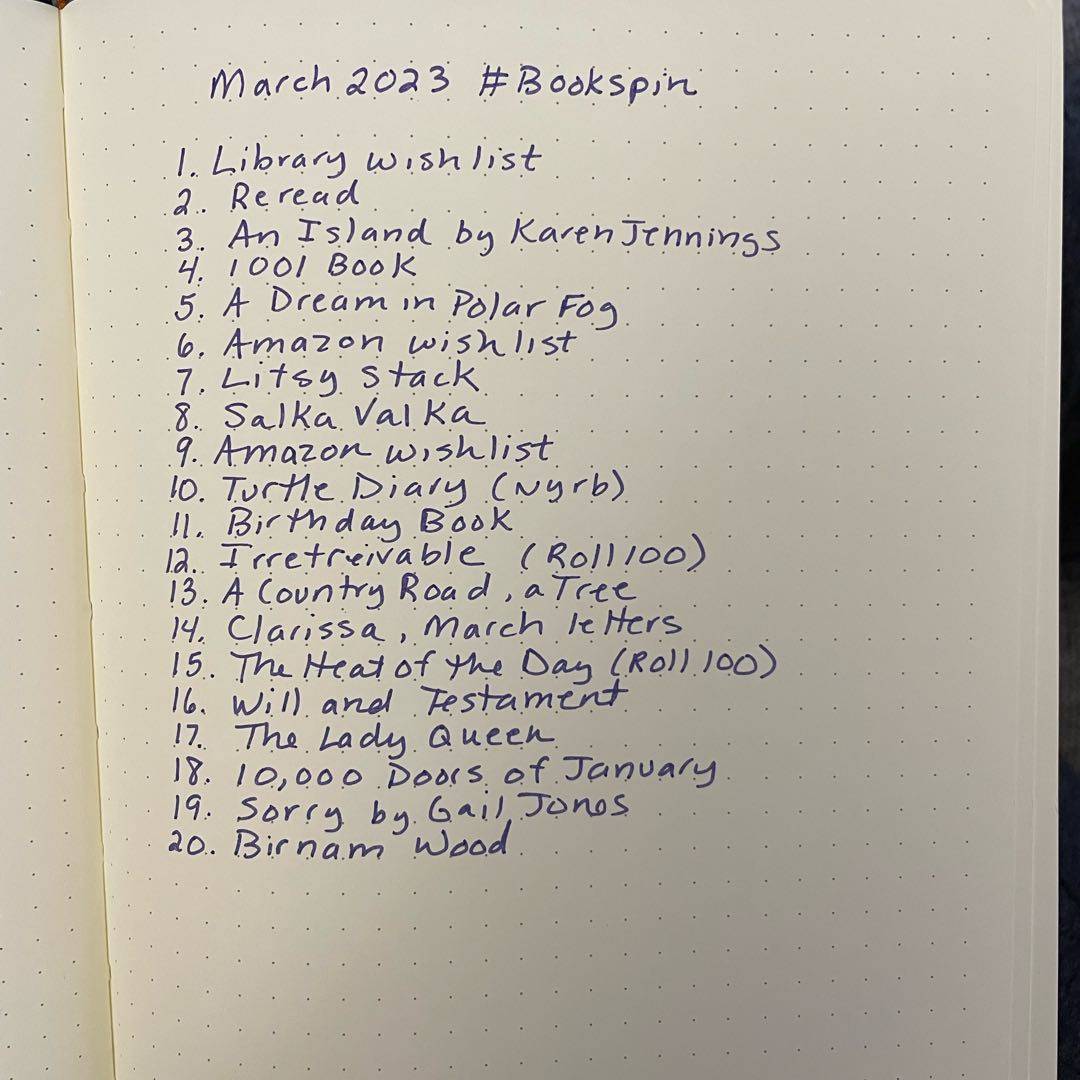 March 2023 #Bookspin
1. Library wishlist
2. Reread
3. An Island by Karen Jennings
4. 1001 Book
5. A Dream in Polar Fog
6. Amazon wishlist
7. Litsy Stack
8. Salka Valka
9. Amazon wishlist
10. Turtle Diary (Nyrb)
11. Birthday Book
12. Irretreivable (Roll 100)
13. A Country Road, a Tree
14. Clarissa, March letters
15. The Heat of the Day (Roll 100)
16. Will and Testament
17. The Lady Queen
18. 10,000 Doors of January
19. Sorry by Gail Jones
20. Birnam Wood